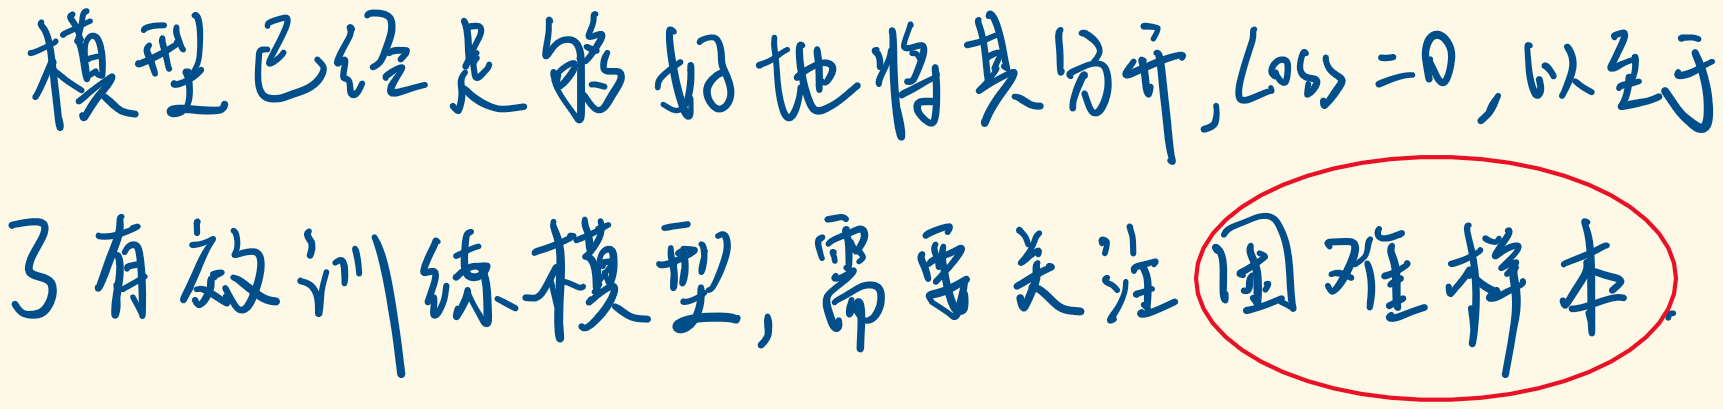 模型已经足够好地将其分开,Loss=0,以至于
了有效训练模型,需要关注困难样本.